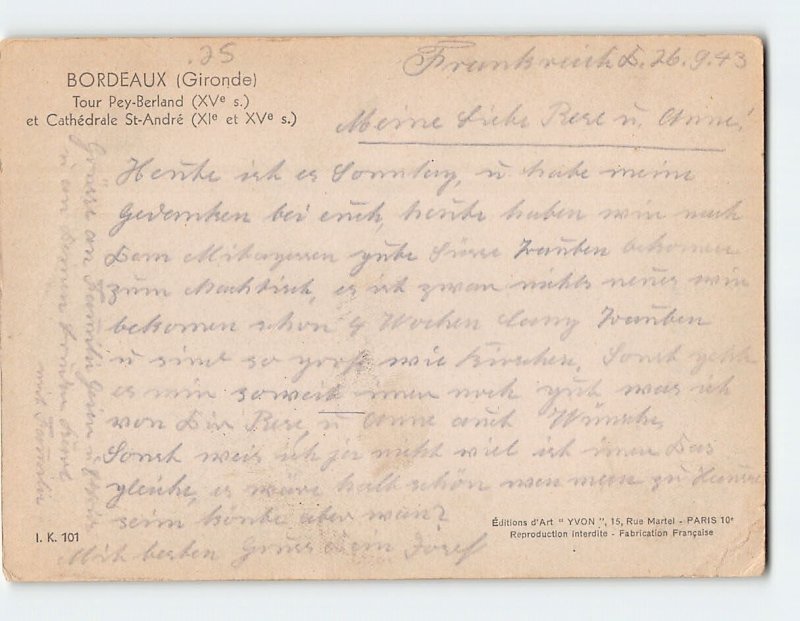 .25
BORDEAUX (Gironde)
Tour Pey-Berland (XVe s.)
et Cathédrale St-André (XIe et XVe s.)
Frankreich D. 26.9.43
Meine Liebe Rese u. Anne!
Heute ist es Sonntag, u habe meine
Gedanken bei euch, heute haben wir nach
Dem Mitagessen gute Süsse Trauben bekomen
zum Nachtisch, es ist zwar nichts neues wir
bekomen schon 4 Wochen lang Trauben
u sind so gross wie Kirschen, Sonst geht
es mir soweit imer noch gut was ich
von Dir Rese u Anne auch Wünsche,
Sonst weis ich ja nicht viel ist imer Das
gleiche, es wäre halt schön wen man zu Hause
sein könte aber wan?
Mit besten Gruss Dein Josef
Grüsse an Familie
u an Deinen
mit Familie
I. K. 101
Éditions d'Art " YVON ", 15, Rue Martel - PARIS 10e
Reproduction Interdite - Fabrication Française